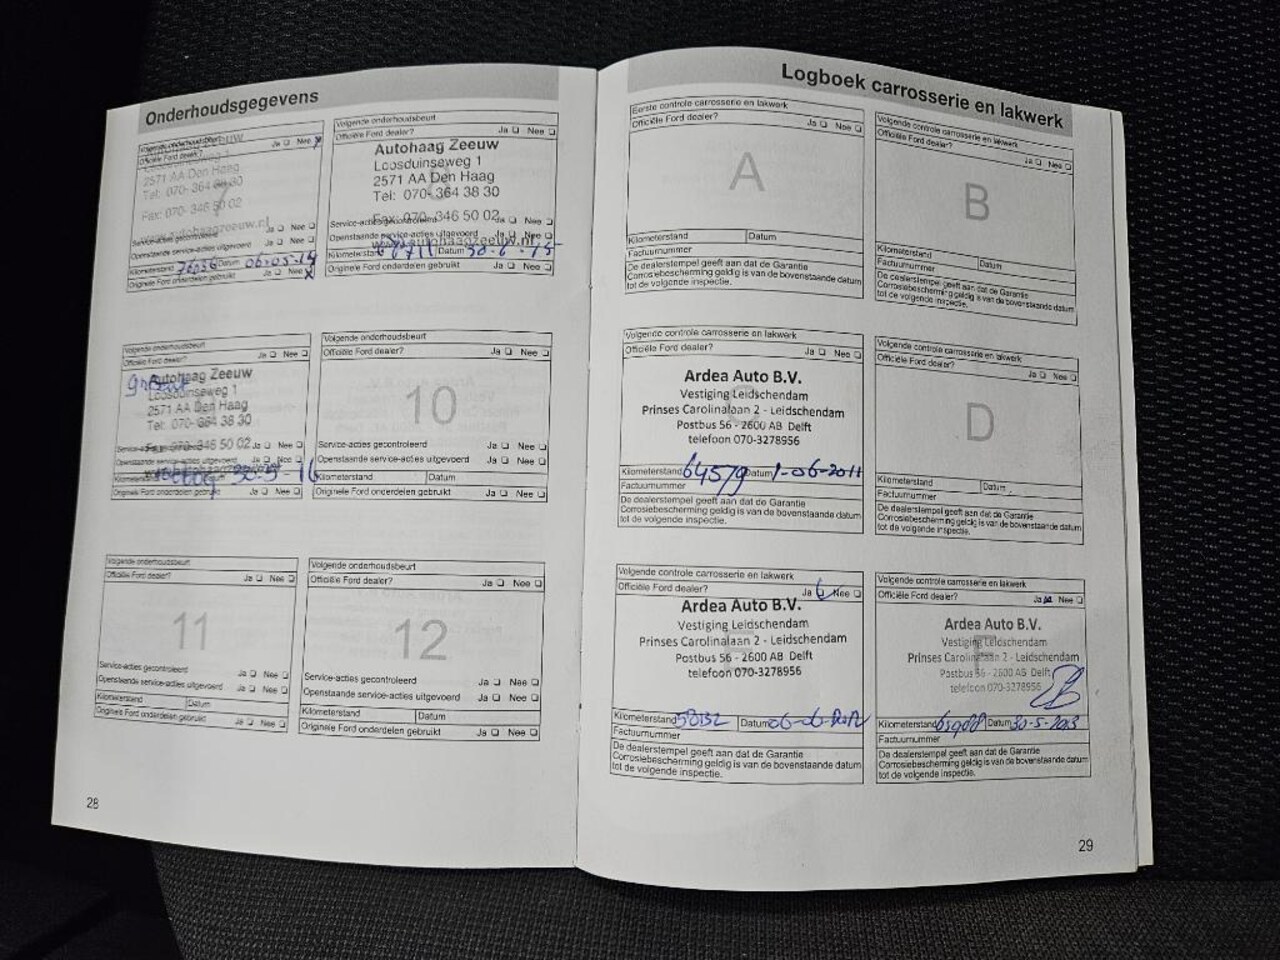 Onderhoudsgegevens
Volgende onderhoudsbeurt
Officiële Ford dealer? Ja Nee x
2571 AA Den Haag
Tel: 070- 364 30
Fax: 070- 346 50 02
www.autohaagzeeuw.nl
Service-acties gecontroleerd Ja Nee
Openstaande service-acties uitgevoerd Ja Nee
Kilometerstand 76536 Datum 06-05-14
Originele Ford onderdelen gebruikt Ja Nee x
Volgende onderhoudsbeurt
Officiële Ford dealer? Ja Nee
Autohaag Zeeuw
Loosduinseweg 1
2571 AA Den Haag
Tel: 070- 364 38 30
Fax: 070- 346 50 02
Service-acties gecontroleerd Ja Nee
Openstaande service-acties uitgevoerd Ja Nee
www.autohaagzeeuw.nl
Kilometerstand Datum 30-6-15
Originele Ford onderdelen gebruikt Ja Nee
Volgende onderhoudsbeurt
Officiële Ford dealer? Ja Nee
Autohaag Zeeuw
Loosduinseweg 1
2571 AA Den Haag
Tel: 070- 364 38 30
Fax: 070- 346 50 02
Service-acties gecontroleerd Ja Nee
Openstaande service-acties uitgevoerd Ja Nee
Kilometerstand Datum 30-5-16
Originele Ford onderdelen gebruikt Ja Nee
Volgende onderhoudsbeurt
Officiële Ford dealer? Ja Nee
10
Service-acties gecontroleerd Ja Nee
Openstaande service-acties uitgevoerd Ja Nee
Kilometerstand Datum
Originele Ford onderdelen gebruikt Ja Nee
Volgende onderhoudsbeurt
Officiële Ford dealer? Ja Nee
11
Service-acties gecontroleerd Ja Nee
Openstaande service-acties uitgevoerd Ja Nee
Kilometerstand Datum
Originele Ford onderdelen gebruikt Ja Nee
Volgende onderhoudsbeurt
Officiële Ford dealer? Ja Nee
12
Service-acties gecontroleerd Ja Nee
Openstaande service-acties uitgevoerd Ja Nee
Kilometerstand Datum
Originele Ford onderdelen gebruikt Ja Nee
28
Logboek carrosserie en lakwerk
Eerste controle carrosserie en lakwerk
Officiële Ford dealer? Ja Nee
A
Kilometerstand Datum
Factuurnummer
De dealerstempel geeft aan dat de Garantie
Corrosiebescherming geldig is van de bovenstaande datum
tot de volgende inspectie.
Volgende controle carrosserie en lakwerk
Officiële Ford dealer? Ja Nee
B
Kilometerstand Datum
Factuurnummer
De dealerstempel geeft aan dat de Garantie
Corrosiebescherming geldig is van de bovenstaande datum
tot de volgende inspectie.
Volgende controle carrosserie en lakwerk
Officiële Ford dealer? Ja Nee
C
Ardea Auto B.V.
Vestiging Leidschendam
Prinses Carolinalaan 2 - Leidschendam
Postbus 56 - 2600 AB Delft
telefoon 070-3278956
Kilometerstand 64579 Datum 1-06-2011
Factuurnummer
De dealerstempel geeft aan dat de Garantie
Corrosiebescherming geldig is van de bovenstaande datum
tot de volgende inspectie.
Volgende controle carrosserie en lakwerk
Officiële Ford dealer? Ja Nee
D
Kilometerstand Datum
Factuurnummer
De dealerstempel geeft aan dat de Garantie
Corrosiebescherming geldig is van de bovenstaande datum
tot de volgende inspectie.
Volgende controle carrosserie en lakwerk
Officiële Ford dealer? Ja Nee
E
Ardea Auto B.V.
Vestiging Leidschendam
Prinses Carolinalaan 2 - Leidschendam
Postbus 56 - 2600 AB Delft
telefoon 070-3278956
Kilometerstand 58132 Datum 06-06-2012
Factuurnummer
De dealerstempel geeft aan dat de Garantie
Corrosiebescherming geldig is van de bovenstaande datum
tot de volgende inspectie.
Volgende controle carrosserie en lakwerk
Officiële Ford dealer? Ja Nee
F
Ardea Auto B.V.
Vestiging Leidschendam
Prinses Carolinalaan 2 - Leidschendam
Postbus 56 - 2600 AB Delft
telefoon 070-3278956
Kilometerstand Datum 30-5-2013
Factuurnummer
De dealerstempel geeft aan dat de Garantie
Corrosiebescherming geldig is van de bovenstaande datum
tot de volgende inspectie.
29